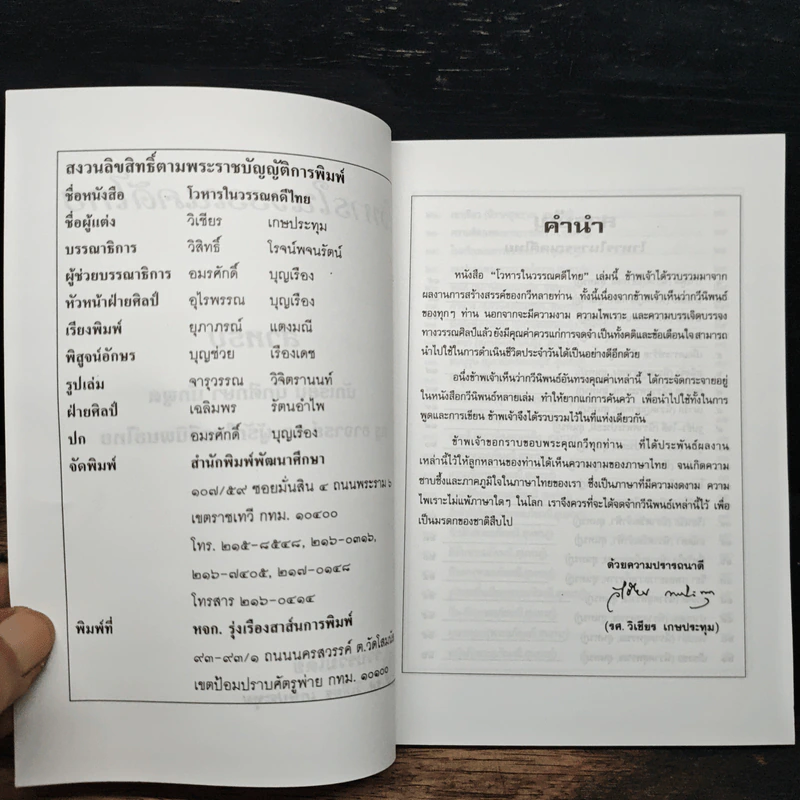 สงวนลิขสิทธิ์ตามพระราชบัญญัติการพิมพ์
ชื่อหนังสือ โวหารในวรรณคดีไทย
ชื่อผู้แต่ง วิเชียร เกษประทุม
บรรณาธิการ วิสิทธิ์ โรจน์พจนรัตน์
ผู้ช่วยบรรณาธิการ อมรศักดิ์ บุญเรือง
หัวหน้าฝ่ายศิลป์ อุไรพรรณ บุญเรือง
เรียงพิมพ์ ยุภาภรณ์ แตงมณี
พิสูจน์อักษร บุญช่วย เรืองเดช
รูปเล่ม จารุวรรณ วิจิตรานนท์
ฝ่ายศิลป์ เฉลิมพร รัตนอำไพ
ปก อมรศักดิ์ บุญเรือง
จัดพิมพ์ สำนักพิมพ์พัฒนาศึกษา
๑๐๗/๕๙ ซอยมั่นสิน ๔ ถนนพระราม ๖
เขตราชเทวี กทม. ๑๐๔๐๐
โทร. ๒๑๕-๘๕๔๘, ๒๑๖-๐๓๑๖,
๒๑๖-๗๔๐๕, ๒๑๗-๐๑๔๘
โทรสาร ๒๑๖-๐๔๑๔
พิมพ์ที่ หจก. รุ่งเรืองสาส์นการพิมพ์
๙๓-๙๓/๑ ถนนนครสวรรค์ ต.วัดโสมนัส
เขตป้อมปราบศัตรูพ่าย กทม. ๑๐๑๐๐
คำนำ
หนังสือ “โวหารในวรรณคดีไทย” เล่มนี้ ข้าพเจ้าได้รวบรวมมาจาก
ผลงานการสร้างสรรค์ของกวีหลายท่าน ทั้งนี้เนื่องจากข้าพเจ้าเห็นว่ากวีนิพนธ์
ของทุกๆ ท่าน นอกจากจะมีความงาม ความไพเราะ และความบรรเจิดบรรจง
ทางวรรณศิลป์แล้ว ยังมีคุณค่าควรแก่การจดจำเป็นทั้งคติและข้อเตือนใจ สามารถ
นำไปใช้ในการดำเนินชีวิตประจำวันได้เป็นอย่างดีอีกด้วย
อนึ่งข้าพเจ้าเห็นว่ากวีนิพนธ์อันทรงคุณค่าเหล่านี้ ได้กระจัดกระจายอยู่
ในหนังสือกวีนิพนธ์หลายเล่ม ทำให้ยากแก่การค้นคว้า เพื่อนำไปใช้ทั้งในการ
พูดและการเขียน ข้าพเจ้าจึงได้รวบรวมไว้ในที่แห่งเดียวกัน
ข้าพเจ้าขอกราบขอบพระคุณกวีทุกท่าน ที่ได้ประพันธ์ผลงาน
เหล่านี้ไว้ให้ลูกหลานของท่านได้เห็นความงามของภาษาไทย จนเกิดความ
ซาบซึ้งและภาคภูมิใจในภาษาไทยของเรา ซึ่งเป็นภาษาที่มีความงดงาม ความ
ไพเราะไม่แพ้ภาษาใดๆ ในโลก เราจึงควรที่จะได้จดจำกวีนิพนธ์เหล่านี้ไว้ เพื่อ
เป็นมรดกของชาติสืบไป
ด้วยความปรารถนาดี
(รศ.วิเชียร เกษประทุม)